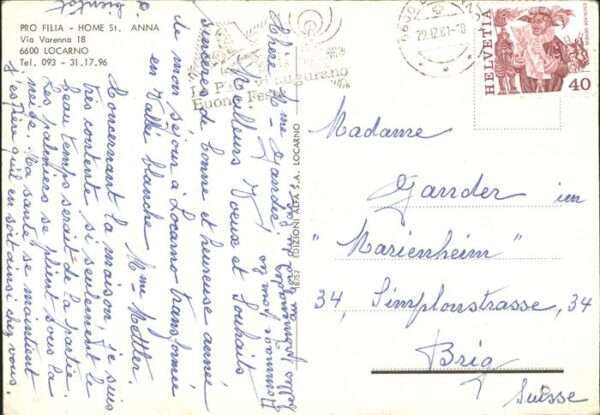 PRO FILIA - HOME St. ANNA
Via Varenna 18
6600 LOCARNO
Tel. 093 - 31.17.96
Chère Mme Gander
Meilleurs Voeux et Souhaits
sincères de bonne et heureuse année
de mon séjour à Locarno transformée
en Vallée blanche Mme Mettler.
Concernant la maison, je suis
très contente si seulement le
beau temps serait de la partie.
Les palmiers se plient sous la
neige. Ma santé se maintient
j'espère qu'il en soit ainsi chez vous.
EDIZIONI ALFA S.A. LOCARNO
29.12.81-18
Buone Feste
HELVETIA
40
Madame
Gander im
"Marienheim"
34, Simplonstrasse, 34
Brig
Suisse